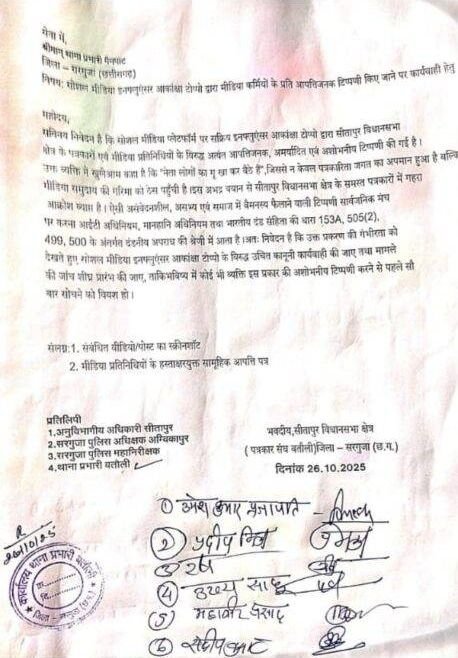 सेवा में,
श्रीमान् थाना प्रभारी मैनपाट
जिला – सरगुजा (छत्तीसगढ़)
विषय: सोशल मीडिया इनफ्लुएंसर आकांक्षा टोप्पो द्वारा मीडिया कर्मियों के प्रति आपत्तिजनक टिप्पणी किए जाने पर कार्यवाही हेतु
महोदय,
सविनय निवेदन है कि सोशल मीडिया प्लेटफॉर्म पर सक्रिय इनफ्लुएंसर आकांक्षा टोप्पो द्वारा सीतापुर विधानसभा
क्षेत्र के पत्रकारों एवं मीडिया प्रतिनिधियों के विरुद्ध अत्यंत आपत्तिजनक, अमर्यादित एवं अशोभनीय टिप्पणी की गई है।
उक्त व्यक्ति ने खुलेआम कहा है कि "नेता लोगों का गू खा कर बैठे हैं",जिससे न केवल पत्रकारिता जगत का अपमान हुआ है बल्कि
मीडिया समुदाय की गरिमा को ठेस पहुंची है।इस अभद्र बयान से सीतापुर विधानसभा क्षेत्र के समस्त पत्रकारों में गहरा
आक्रोश व्याप्त है। ऐसी असंवेदनशील, असभ्य एवं समाज में वैमनस्य फैलाने वाली टिप्पणी सार्वजनिक मंच
पर करना आईटी अधिनियम, मानहानि अधिनियम तथा भारतीय दंड संहिता की धारा 153A, 505(2),
499, 500 के अंतर्गत दंडनीय अपराध की श्रेणी में आता है।अतः निवेदन है कि उक्त प्रकरण की गंभीरता को
देखते हुए सोशल मीडिया इनफ्लुएंसर आकांक्षा टोप्पो के विरुद्ध उचित कानूनी कार्यवाही की जाए तथा मामले
की जांच शीघ्र प्रारंभ की जाए, ताकिभविष्य में कोई भी व्यक्ति इस प्रकार की अशोभनीय टिप्पणी करने से पहले सौ
बार सोचने को विवश हो।
संलग्न:1. संबंधित वीडियो/पोस्ट का स्क्रीनशॉट
2. मीडिया प्रतिनिधियों के हस्ताक्षरयुक्त सामूहिक आपत्ति पत्र
प्रतिलिपी
1.अनुविभागीय अधिकारी सीतापुर
2.सरगुजा पुलिस अधिक्षक अम्बिकापुर
3.सरगुजा पुलिस महानिरीक्षक
4.थाना प्रभारी बतौली
भवदीय,सीतापुर विधानसभा क्षेत्र
( पत्रकार संघ बतौली)जिला – सरगुजा (छ.ग.)
दिनांक 26.10.2025
① उमेश कुमार प्रजापति -
② प्रदीप मिश्रा
③
④ साहू
⑤ महावीर प्रसाद
⑥ संदीप
26/10/25
कार्यालय थाना प्रभारी बतौली
जिला - सरगुजा (छ.ग.)